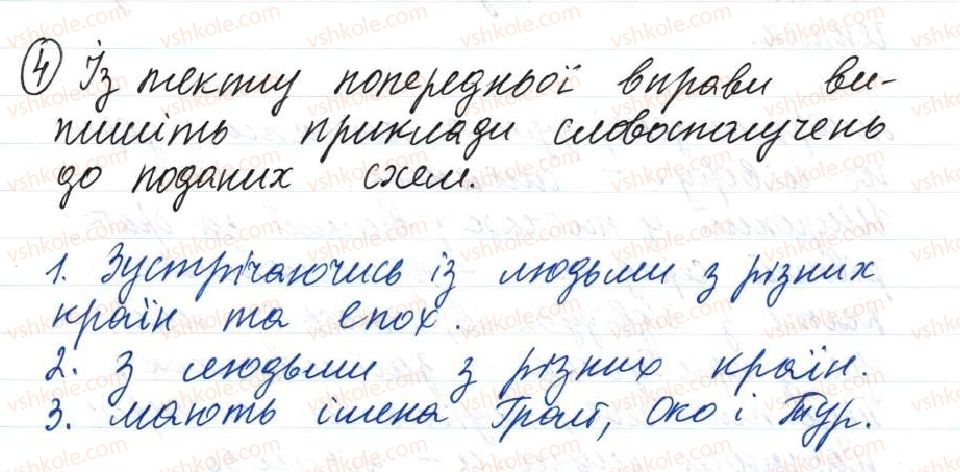 4 Із текту попередньої вправи ви-
пишіть приклади словосполучень
до поданих схем.
1. Зустрічаючись із людьми з різних
країн та епох.
2. З людьми з різних країн.
3. мають імена Гролт, Око і Тур.